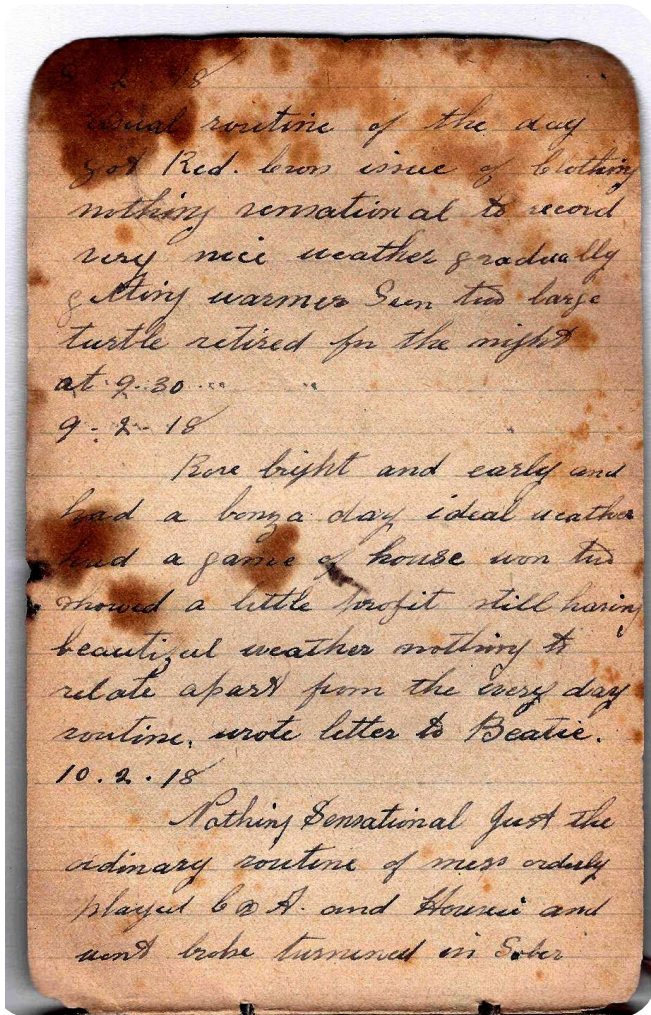 8. 2. 18
usual routine of the day
got Red. Cross issue of Clothing
nothing sensational to record
very nice weather gradually
getting warmer Seen two large
turtle retired for the night
at 9.30
9. 2. 18
Rose bright and early and
had a bonza day ideal weather
had a game of house won two
showed a little profit still having
beautiful weather nothing to
relate apart from the every day
routine, wrote letter to Beatie.
10. 2. 18
Nothing Sensational Just the
ordinary routine of mess orderly
played C & A. and Housie and
went broke turnined in Sober